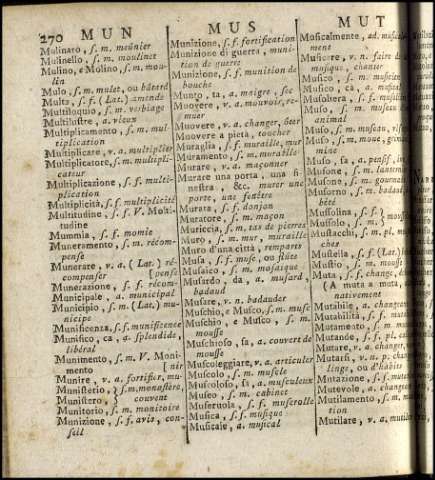 270 MUN
Mulinaro, s. m. meûnier
Mulinello, s. m. moulinet
Mulino, e Molino, s. m. mou-
lin
Mulo, s. m. mulet, ou bâtard
Multa, s. f. (Lat.) amende
Multiloquio, s. m. verbiage
Multilustre, a. vieux
Multiplicamento, s. m. mul
tiplication
Multiplicare, v. a. multiplier
Multiplicatore, s. m. multipli-
cateur
Multiplicazione, s. f. multi-
plication
Multiplicità, s. f. multiplicité
Multitudine, s. f. V. Molti-
tudine
Mummia, s. f. momie
Muneramento, s. m. récom-
pense
Munerare, v. a. (Lat.) ré-
compenser [pense
Munerazione, s. f. récom-
Municipale, a. municipal
Municipio, s. m. (Lat.) mu-
nicipe
Munificenza, s. f. munificence
Munifico, ca, a. splendide,
libéral
Munimento, s. m. V. Moni-
mento [nir
Munire, v. a. fortifier, mu-
Munisterio, } s. m. monastère,
Munistero, } couvent
Munitorio, s. m. monitoire
Munizione, s. f. avis, con-
seil
MUS
Munizione, s. f. fortification
Munizione di guerra, muni-
tion de guerre
Munizione, s. f. munition de
bouche
Munto, ta, a. maigre, sec
Muovere, v. a. mouvoir, re-
muer
Muovere, v. a. changer, ôter
Muovere a pietà, toucher
Muraglia, s. f. muraille, mur
Muramento, s. m. muraille
Murare, v. a. maçonner
Murare una porta, una fi-
nestra, &c. murer une
porte, une fenêtre
Murata, s. f. donjon
Muratore, s. m. maçon
Muriccia, s. m. tas de pierres
Muro, s. m. mur, muraille
Muro d'una città, remparts
Musa, s. f. muse, ou flûte
Musaico, s. m. mosaïque
Musardo, da, a. musard,
badaud
Musare, v. n. badauder
Muschio, e Musco, s. m. musc
Muschio, e Musco, s. m.
mousse
Muschioso, sa, a. couvert de
mousse
Muscoleggiare, v. a. articuler
Muscolo, s. m. muscle
Muscoloso, sa, a. musculeux
Museo, s. m. cabinet
Museruola, s. f. muserolle
Musica, s. f. musique
Musicale, a. musical
MUT
Musicalmente, ad. musicale-
ment
Musicare, v. n. faire de la
musique, chanter
Musico, s. m. musicien
Musico, ca, a. musical
Musoliera, s. f. muselière
Muso, s. m. museau, visage
Muso, s. m. moue, grimace
animal
Muso, sa, a. pensif,
Musone, s. m.
Musone, s. m. gourmade
Musorno, s. m. badaud,
bété
Mussolina, s. f. }
Mussolo, s. m. }
Mustacchi, s. m. pl. mousta-
ches
Mustella, s. f. (Lat.)
Mustio, s. m.
Muta, s. f. change,
(A muta a muta,
nativement
Mutabile, a. changeant
Mutabilità, s. f.
Mutamento, s. m.
Mutande, s. f. pl.
Mutare, v. a. changer
Mutarsi, v. n. p. changer de
linge, ou d'habits
Mutazione, s. f.
Mutevole, a. changeant
Mutilamento, s. m. mutila-
tion
Mutilare, v. a. mutiler